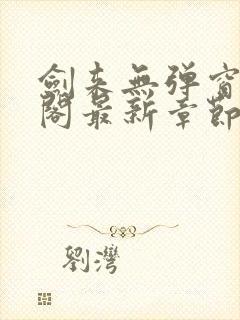 劍來無彈窗
閣最新章節
劉灣